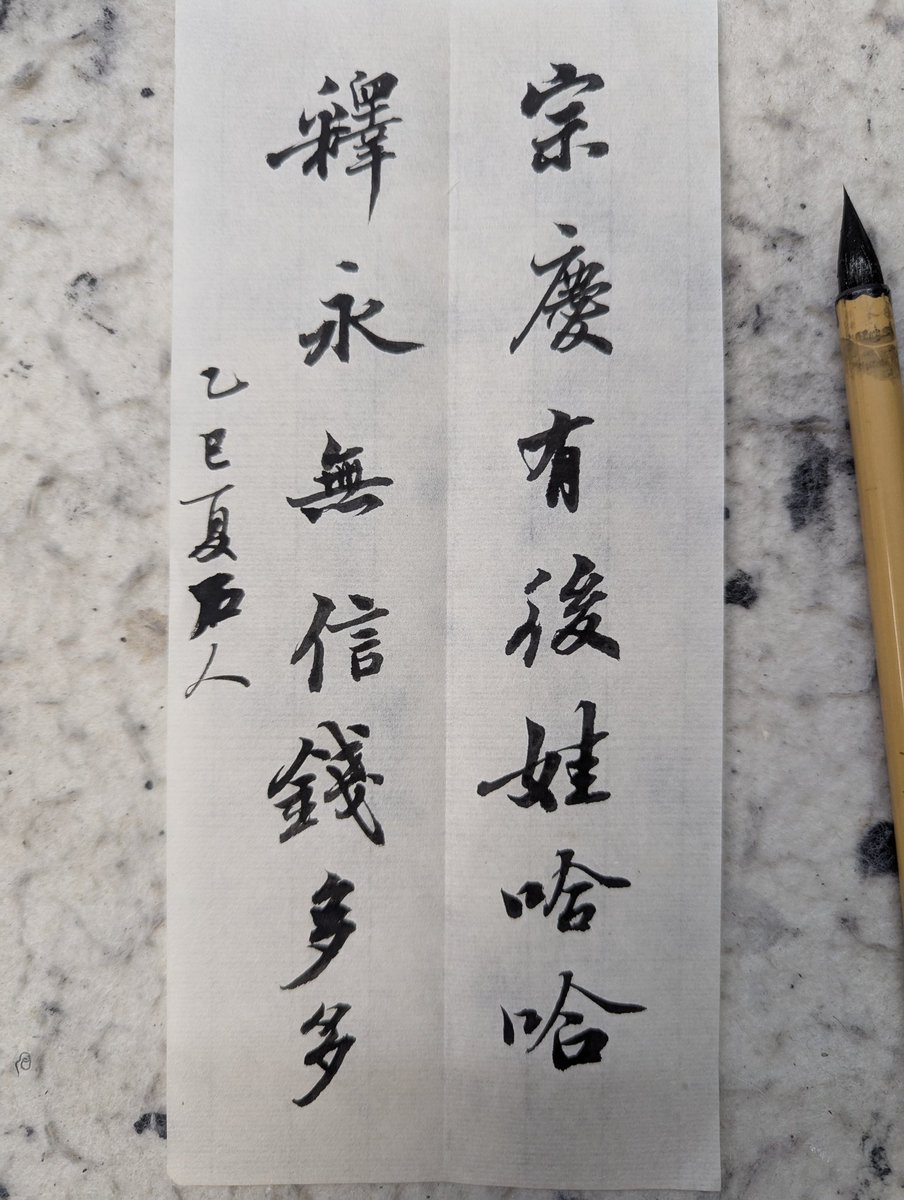 宗慶有後娃哈哈
釋永無信錢多多
乙巳夏石人